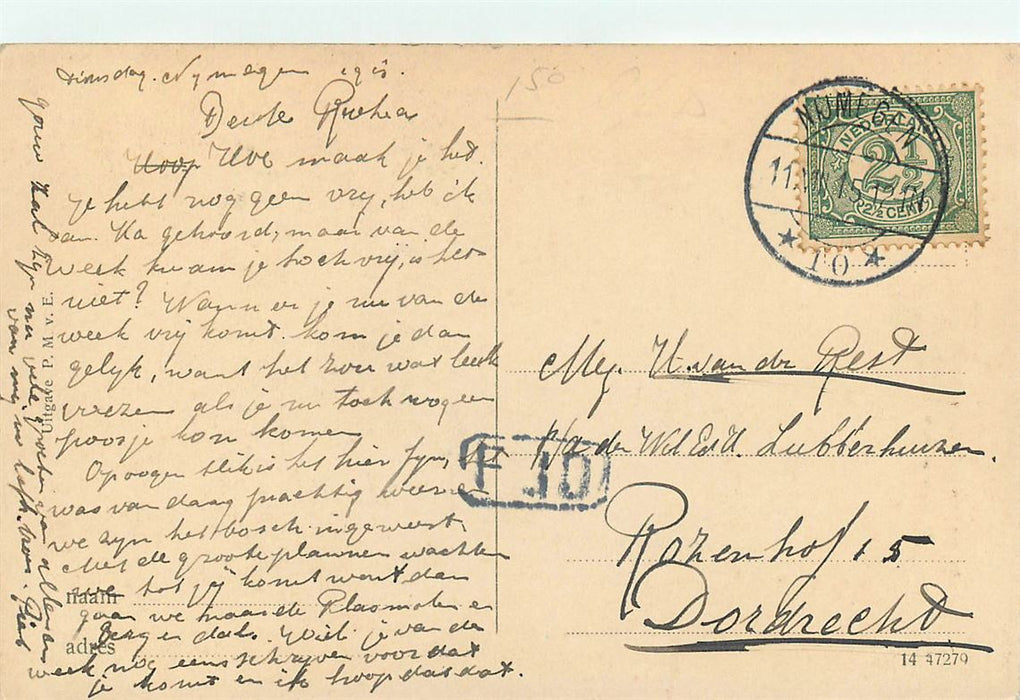 Dinsdag. Nymegen 1915.
Beste
Hoe maak je het.
Je hebt nog geen vrij, heb ik
van. Ka gehoord, maar van de
week kwam je toch vrij, is het
niet? Wanneer je nu van de
week vrij komt. kom je dan
gelijk, want het zou wat leuk
wezen als je nu toch nog een
poosje kon komen
Op oogenblik is het hier fyn, het
was van daag prachtig weer en
we zyn het bosch ingeweest.
Met de groote plannen wachten
we tot jij komt want dan
gaan we naar de Plasmolen en
Berg en dal. Wil je van de
week nog eens schrijven voor dat
je komt en ik hoop das dat.
gouw zal zyn nu vele groeten van allen en
van mij
naam
adres
Uitgave P. M. v. E.
150
NIJMEGEN
11.VIII.15.
★ 10 ★
NEDERLAND
2½
2½ CENT
Mej. H. van der Rest
p/a de Wel Ed. H. Lubberhuizen.
F 10
Rozenhof 15
Dordrecht
14 47279